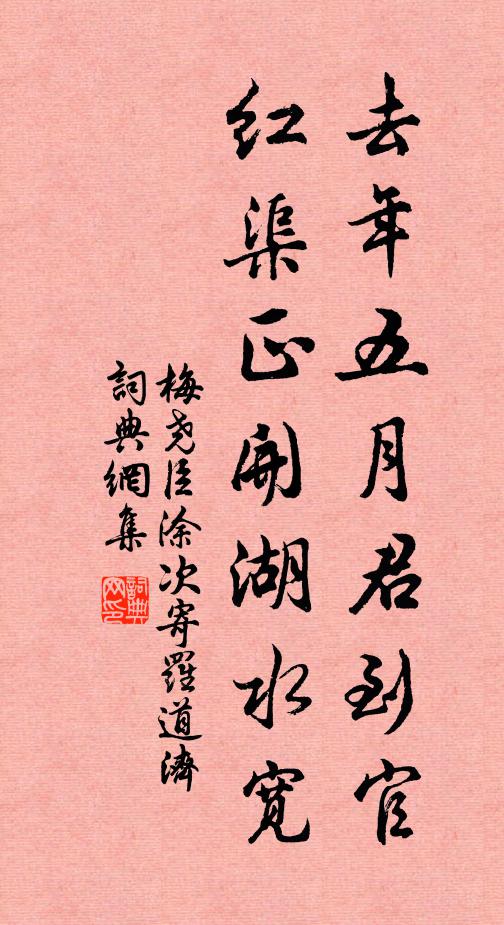 去年五月君到官
红渠正開湖水寬
梅尧臣涂次寄羅道濟
詞典網集
詞典
网印